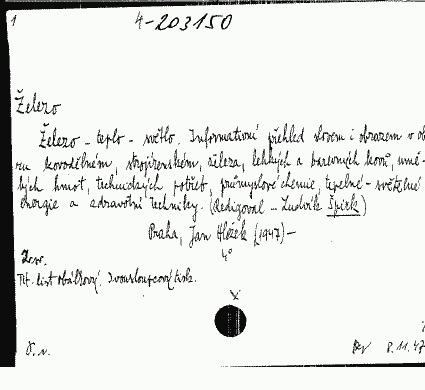 1 4-203150
Železo
Železo - teplo - světlo. Informativní přehled slovem i obrazem v obo-
ru kovodělném, strojírenském, železa, lehkých a barevných kovů, umě-
lých hmot, technických potřeb, průmyslové chemie, tepelné - světelné
energie a zdravotní techniky. (Redigoval ... Ludvík Špirk)
Praha, Jan Hložek (1947) -
4°
Tit. list obálkový. Dvousloupcový tisk.
D. n. 8.11.47